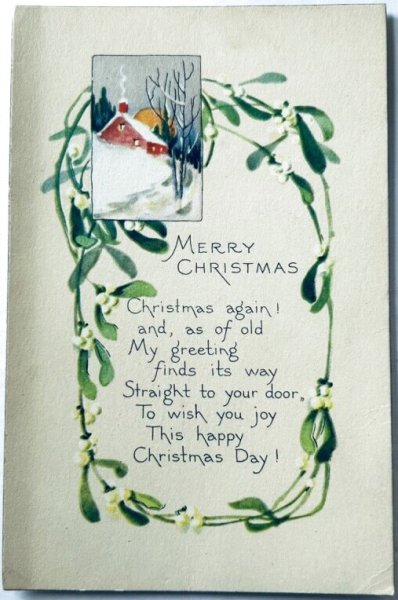 MERRY
CHRISTMAS
Christmas again!
and, as of old
My greeting
finds its way
Straight to your door,
To wish you joy
This happy
Christmas Day!